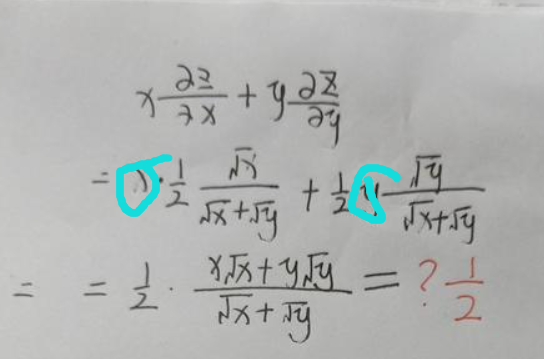 x ∂z/∂x + y ∂z/∂y
= x · 1/2 √x/(√x+√y) + 1/2 y √y/(√x+√y)
= = 1/2 · (x√x+y√y)/(√x+√y) = ? 1/2